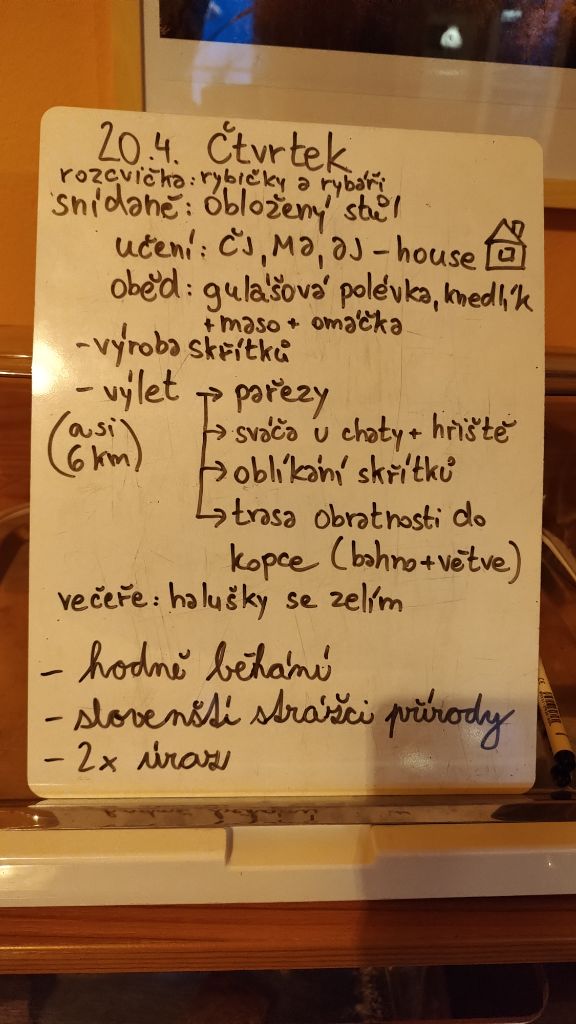 20.4. Čtvrtek
rozcvička: rybičky a rybáři
snídaně: obložený stůl
učení: ČJ, Ma, AJ - house
oběd: gulášová polévka, knedlík
+ maso + omáčka
- výroba skřítků
- výlet → pařezy
(asi 6 km)
→ sváča u chaty + hřiště
→ oblíkání skřítků
→ trasa obratnosti do
kopce (bahno + větve)
večeře: halušky se zelím
- hodně běhání
- slovenští strážci přírody
- 2x úraz